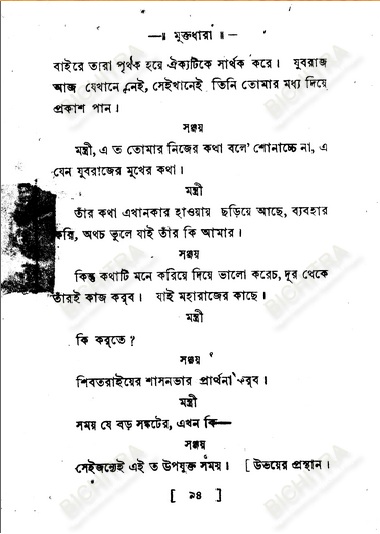 —॥ মুক্তধারা ॥—
বাইরে তারা পৃথক হয়ে ঐক্যটিকে সার্থক করে। যুবরাজ
আজ যেখানে নেই, সেইখানেই তিনি তোমার মধ্য দিয়ে
প্রকাশ পান।
সঞ্জয়
মন্ত্রী, এ ত তোমার নিজের কথা বলে' শোনাচ্চে না, এ
যেন যুবরাজের মুখের কথা।
মন্ত্রী
তাঁর কথা এখানকার হাওয়ায় ছড়িয়ে আছে, ব্যবহার
করি, অথচ ভুলে যাই তাঁর কি আমার।
সঞ্জয়
কিন্তু কথাটি মনে করিয়ে দিয়ে ভালো করেচ, দূর থেকে
তাঁরই কাজ করব। যাই মহারাজের কাছে।
মন্ত্রী
কি করতে?
সঞ্জয়
শিবতরাইয়ের শাসনভার প্রার্থনা করব।
মন্ত্রী
সময় যে বড় সঙ্কটের, এখন কি—
সঞ্জয়
সেইজন্যেই এই ত উপযুক্ত সময়। [ উভয়ের প্রস্থান।
[ ৯৪ ]
BICHITRA